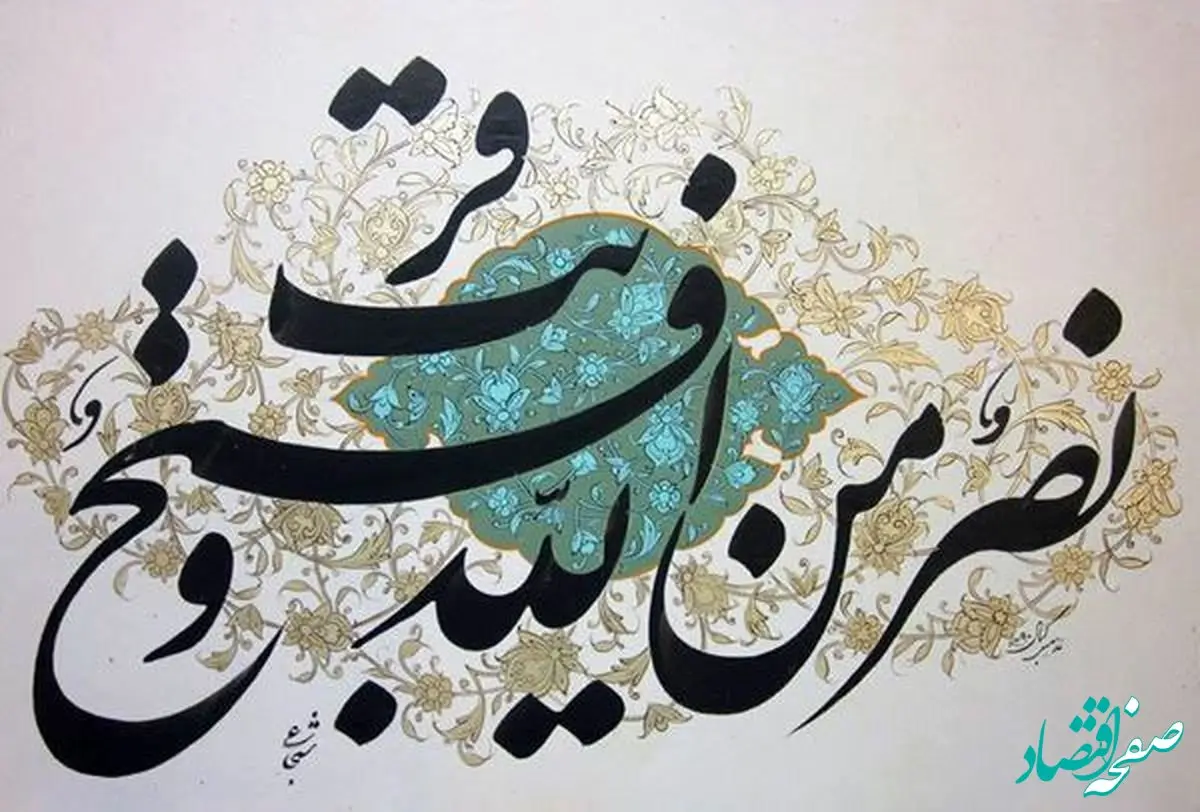 نصرٌ من اللّه و فتحٌ قریب
صفحه اقتصاد